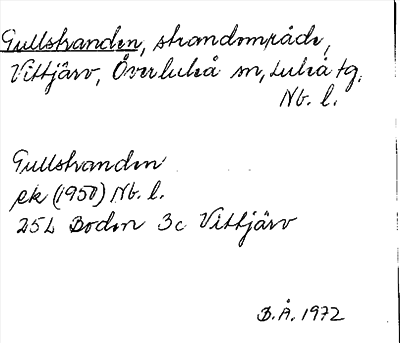 Gullstranden, strandområde,
Vittjärv, Överluleå sn, Luleå tg.
Nb. l.
Gullstranden
ek (1950) Nb. l.
25L Boden 3c Vittjärv
B.Å. 1972